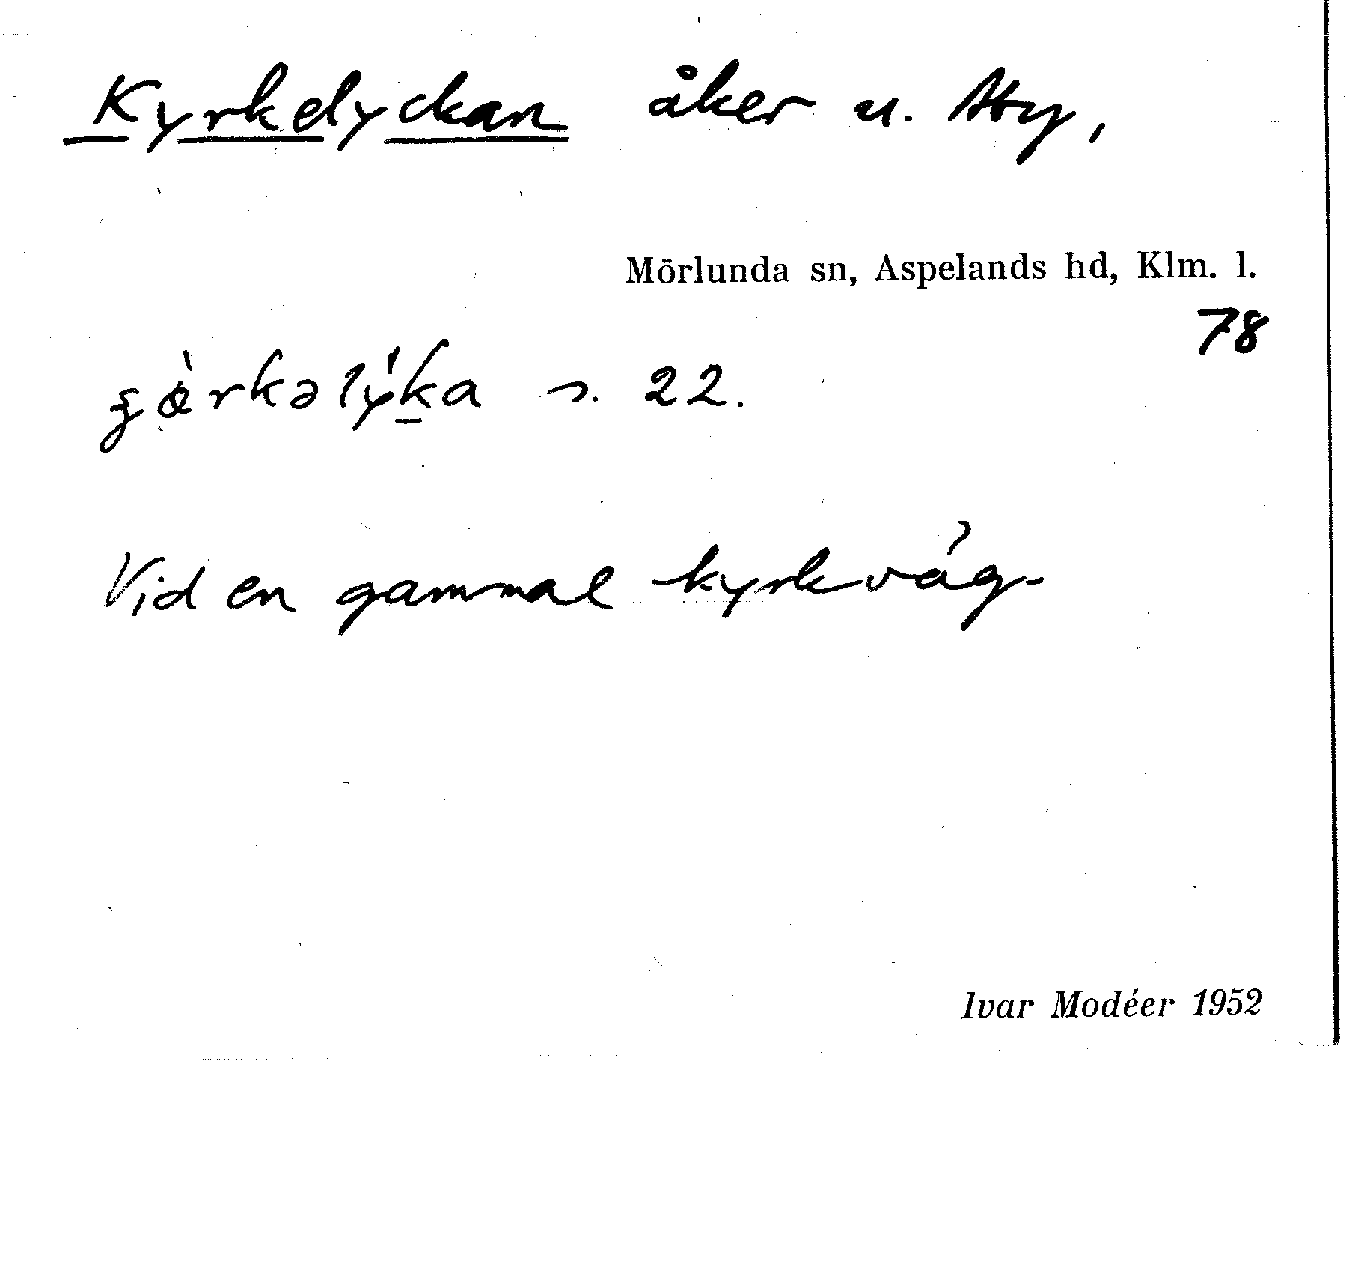 Kyrkelyckan åker u. Aby,
Mörlunda sn, Aspelands hd, Klm. l.
78
s. 22.
Vid en gammal kyrkväg.
Ivar Modéer 1952